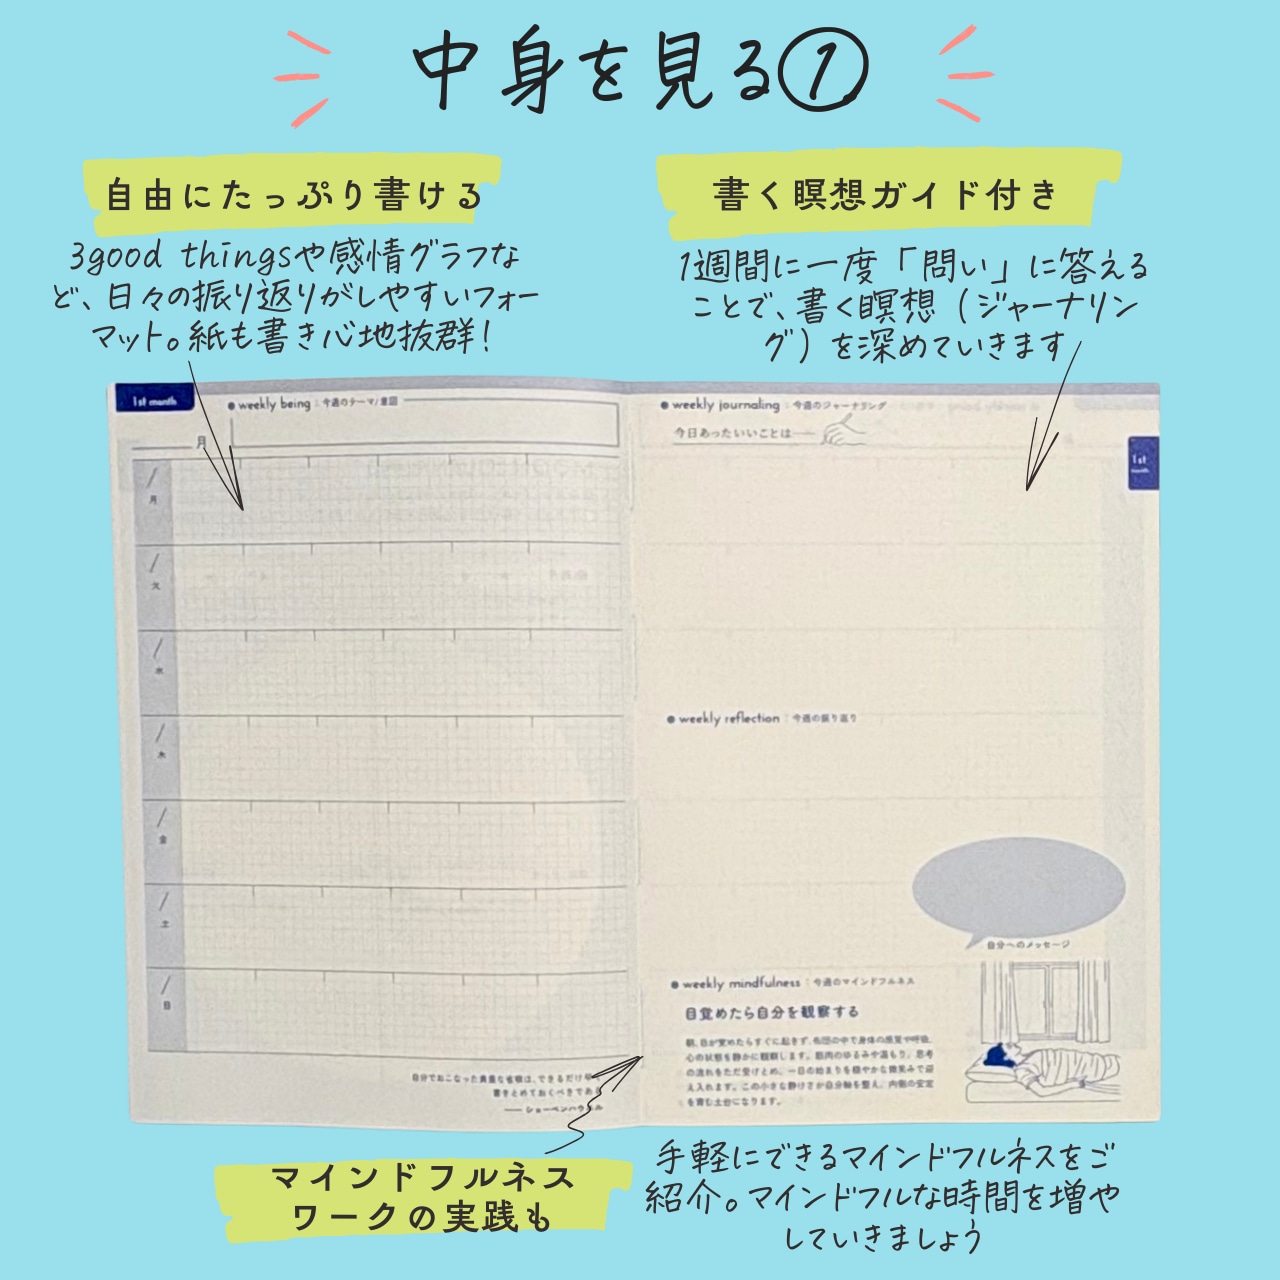 中身を見る①
自由にたっぷり書ける
3good thingsや感情グラフな
ど、日々の振り返りがしやすいフォー
マット。紙も書き心地抜群！
書く瞑想ガイド付き
1週間に一度「問い」に答える
ことで、書く瞑想（ジャーナリン
グ）を深めていきます
1st month
weekly being：今週のテーマ/意図
月
/
月
/
火
/
水
/
木
/
金
/
土
/
日
自分でおこなった貴重な省察は、できるだけ早く
書きとめておくべきである
── ショーペンハウエル
weekly journaling：今週のジャーナリング
今日あったいいことは──
1st
month
weekly reflection：今週の振り返り
自分へのメッセージ
weekly mindfulness：今週のマインドフルネス
目覚めたら自分を観察する
朝、目が覚めたらすぐに起きず、布団の中で身体の感覚や呼吸、
心の状態を静かに観察します。筋肉のゆるみや温もり、思考
の流れをただ受けとめ、一日の始まりを穏やかな微笑みで迎
え入れます。この小さな静けさが自分軸を整え、内側の安定
を育む土台になります。
マインドフルネス
ワークの実践も
手軽にできるマインドフルネスをご
紹介。マインドフルな時間を増や
していきましょう